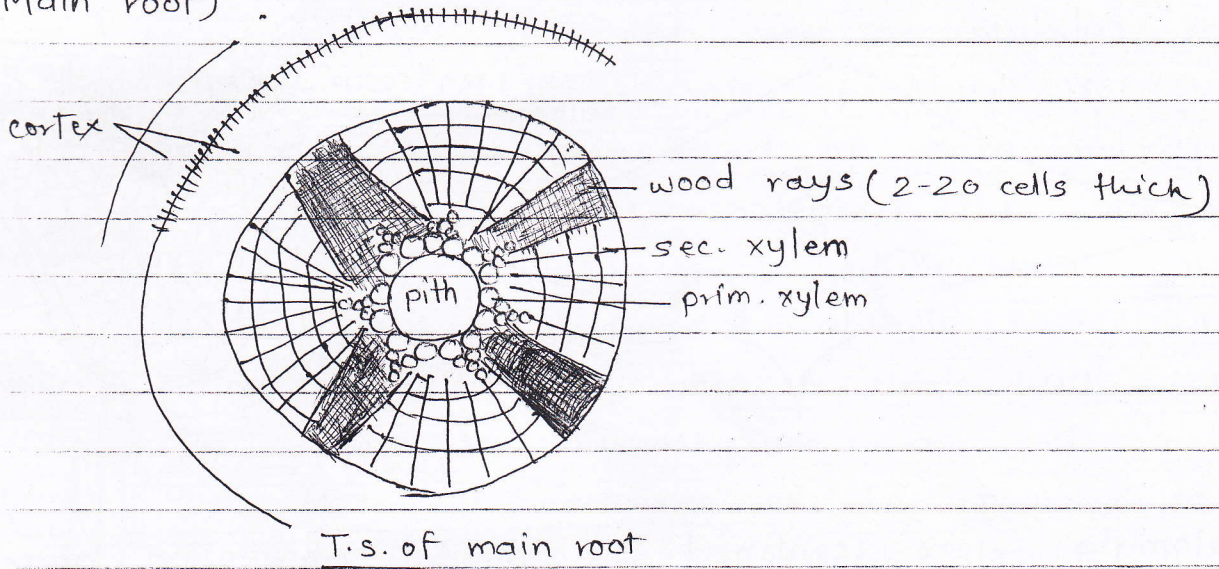 Main root)
cortex
wood rays (2-20 cells thick)
sec. xylem
prim. xylem
pith
T.s. of main root